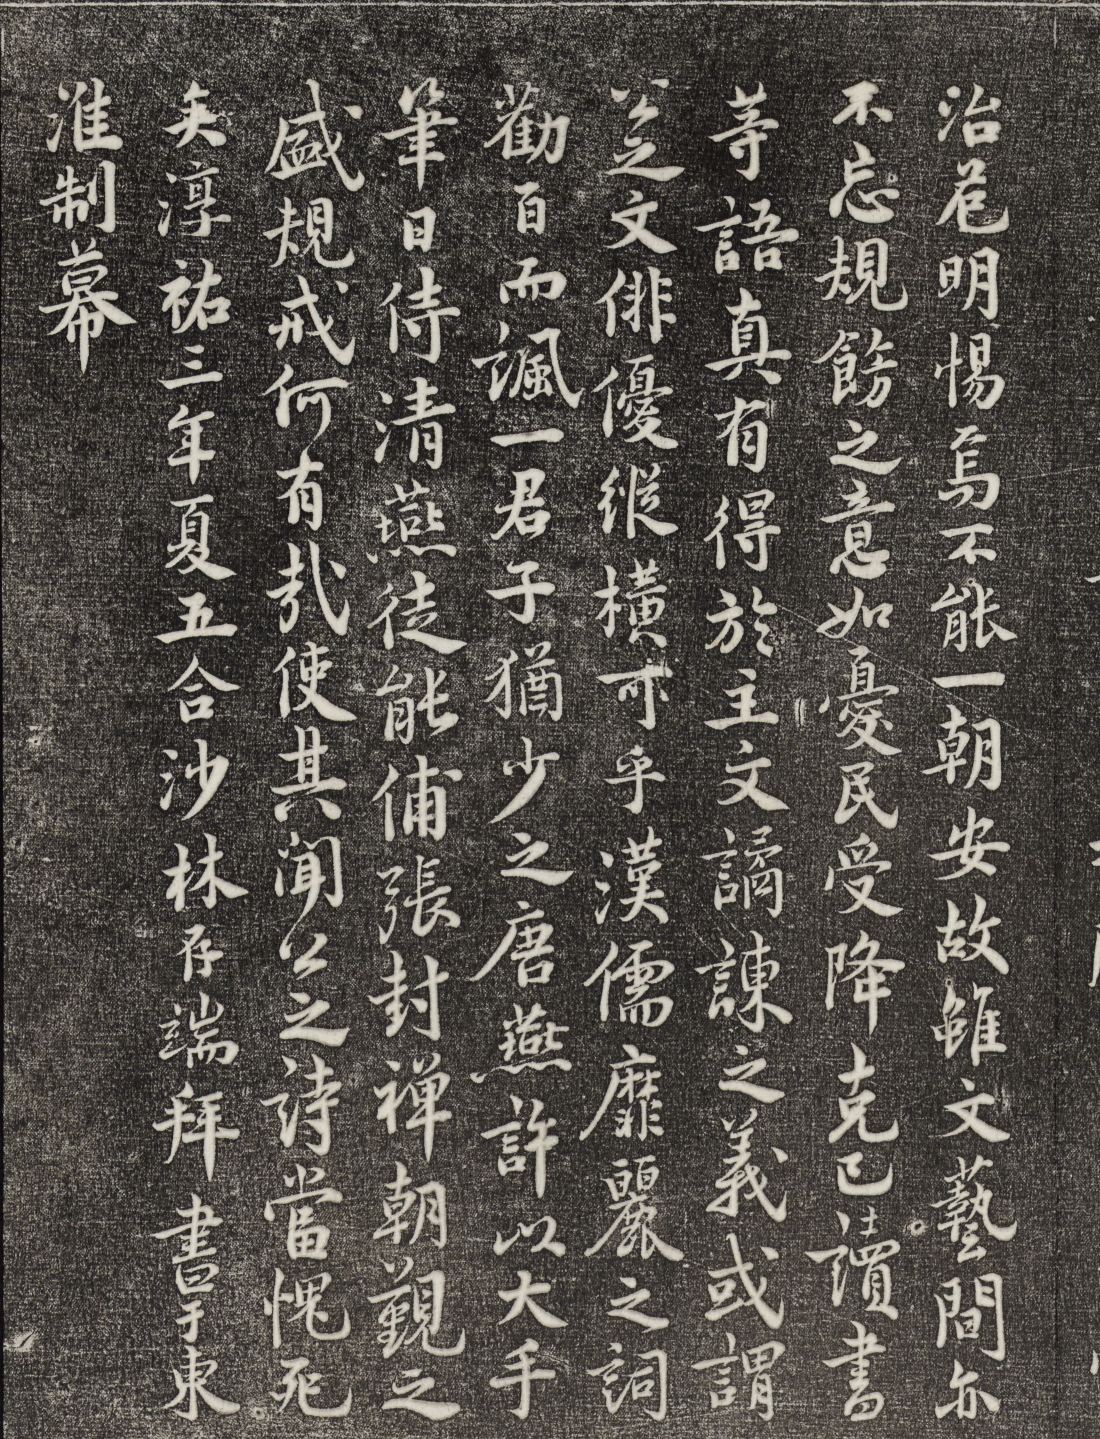 治危明惕焉不能一朝安故雖文藝間亦
不忘規餝之意如憂民受降克己讀書
等語真有得於主文譎諫之義或謂
公文俳優縱橫可乎漢儒靡麗之詞
勸百而諷一君子猶少之唐燕許以大手
筆日侍清燕徒能俌張封禪朝覲之
盛規戒何有哉使其聞公之詩當愧死
矣淳祐三年夏五合沙林存端拜書于東
淮制幕